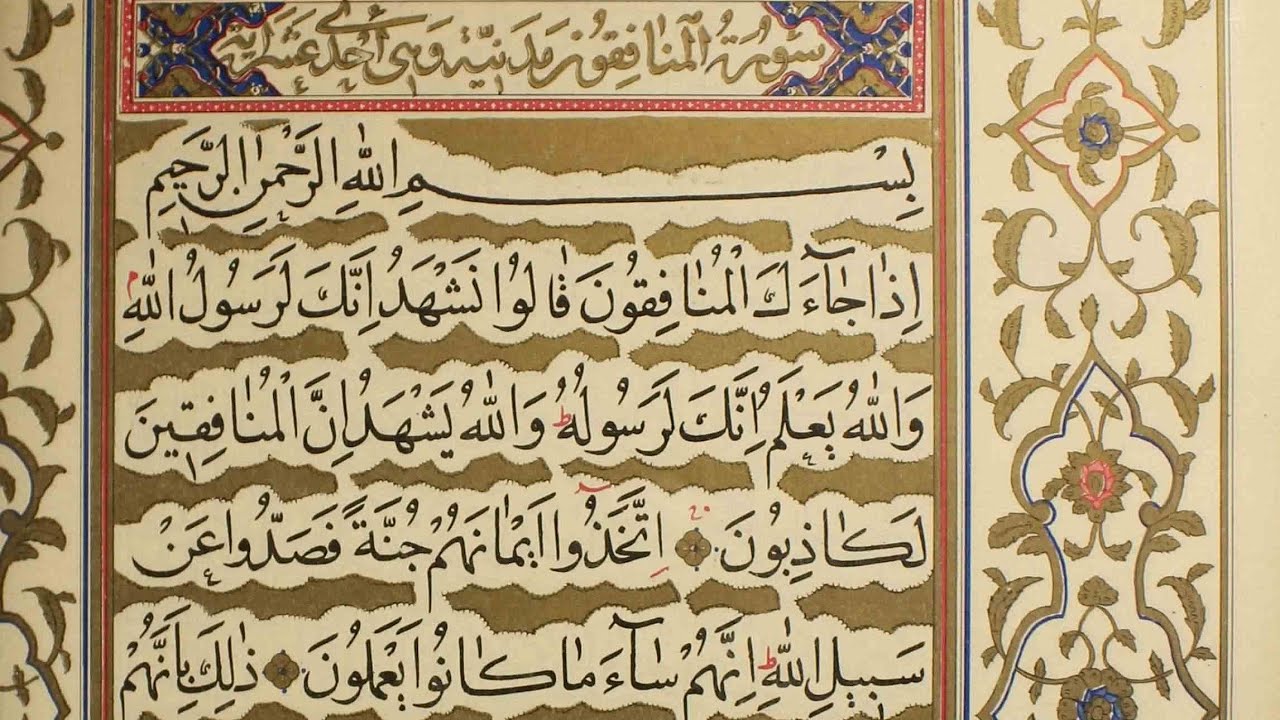 سورة المنافقون مدنية وهي احدى عشر اية
بِسْمِ اللّٰهِ الرَّحْمٰنِ الرَّحِيمِ
اِذَا جَٓاءَكَ الْمُنَافِقُونَ قَالُوا نَشْهَدُ اِنَّكَ لَرَسُولُ اللّٰهِ ۢ
وَاللّٰهُ يَعْلَمُ اِنَّكَ لَرَسُولُهُ ؕ وَاللّٰهُ يَشْهَدُ اِنَّ الْمُنَافِقِينَ
لَكَاذِبُونَ ۞ اِتَّخَذُٓوا اَيْمَانَهُمْ جُنَّةً فَصَدُّوا عَنْ
سَبِيلِ اللّٰهِ ؕ اِنَّهُمْ سَٓاءَ مَا كَانُوا يَعْمَلُونَ ۞ ذٰلِكَ بِاَنَّهُمْ